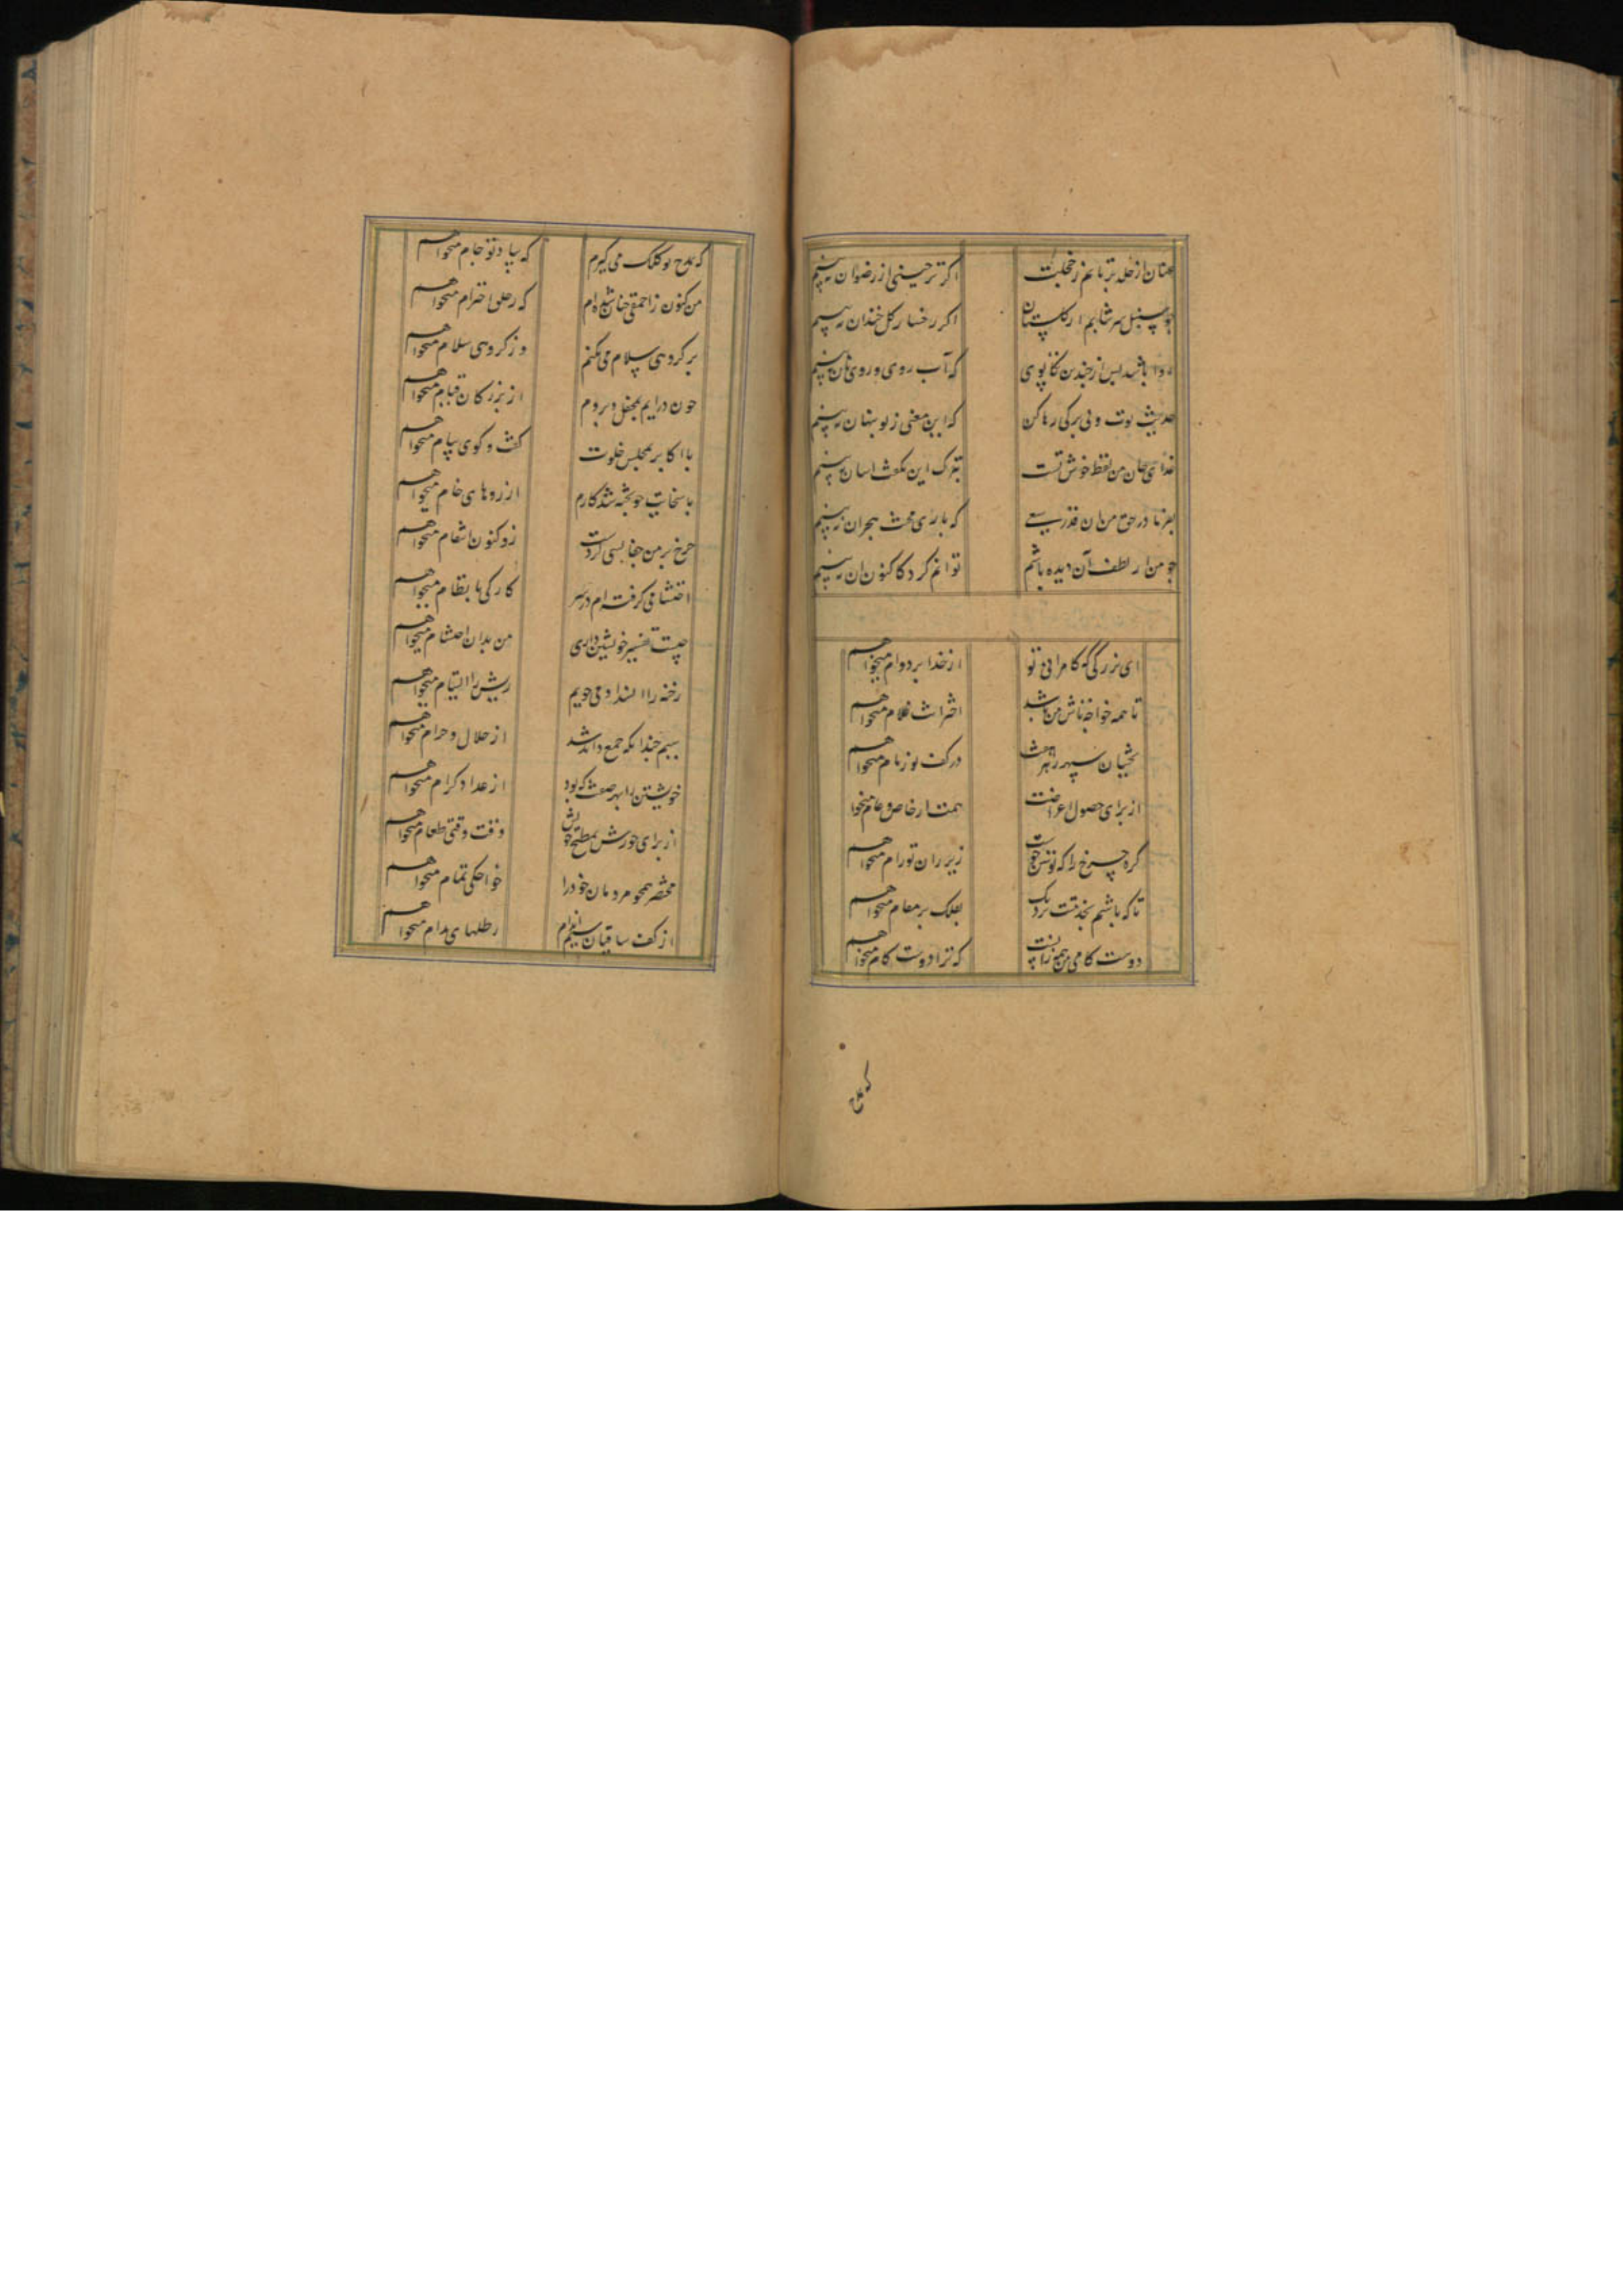 عنان از خلد برتابم ز خجلت اگر ترحیبی از رضوان نه بینم
چو سنبل سر بتابم از گلستان اگر رخسار گل خندان نه بینم
روا باشد پس از چندین تکاپوی که آب روی و روی نان نه بینم
حدیث توت و بی برگی رها کن که این معنی ز تو پنهان نه بینم
غذای جان من لفظ خوش تست بترک این گفت آسان نه بینم
بفرما در حق من آن قدر سعی که باری محنت هجران نه بینم
چو من از لطف آن دیده باشم توانم کرد کاکنون آن نه بینم
ای بزرگی که کامرانی تو از خدا بر دوام میخواهم
تا همه خواجه تاش من باشد اخترانت غلام میخواهم
بختیان سپهر را در کف تو زمام میخواهم
از برای حصول اعراضت همت از خاص و عام میخوا
کره چرخ را که توسن خوست زیر ران تو رام میخواهم
تا که باشم بخدمتت نزدیک بفلک بر مقام میخواهم
دوست کامی من همه زانست که ترا دوست کام میخواهم
که بمدح
که بمدح تو کلک می گیرم که بیاد تو جام میخواهم
من کنون ز احمقی چنان شده ام که ز خلق احترام میخواهم
بر گروهی سلام می نکنم وز گروهی سلام میخواهم
چون درایم بمحفل و بروم از بزرگان قیام میخواهم
با اکابر بمجلس خلوت گفت و گوی پیام میخواهم
با سخایت چو پخته شد کارم آرزوهای خام میخواهم
چرخ بر من جفا بسی کردست زو کنون انتقام میخواهم
احتشامی گرفته ام در سر کارکی با نظام میخواهم
چیست تفسیر خویشتن داری من بدان احتشام میخواهم
رخنه را انسداد می جویم ریش را التیام میخواهم
سیم چندانکه جمع داند شد از حلال و حرام میخواهم
خویشتن را بهر صفت که بود از عداد کرام میخواهم
از برای خورش بمطبخ خویش وقت وقتی طعام میخواهم
مختصر همچو مردمان خود را خواجگی تمام میخواهم
از کف ساقیان سیم اندام رطلهای مدام میخواهم